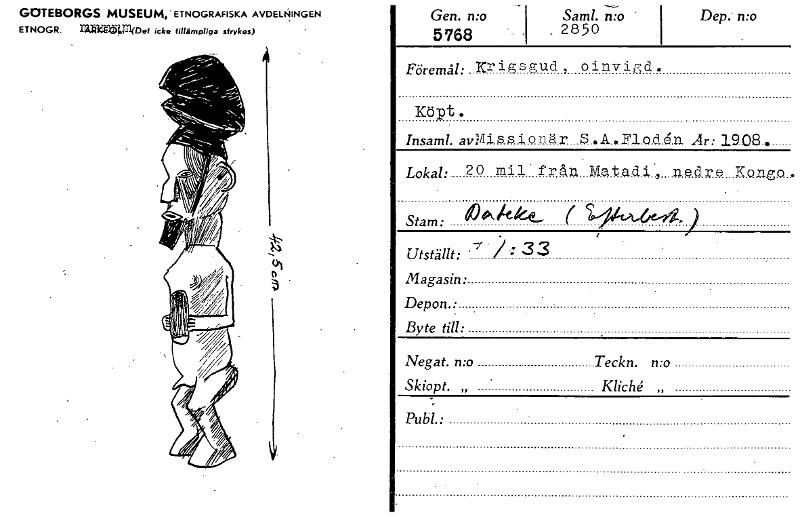 GÖTEBORGS MUSEUM, ETNOGRAFISKA AVDELNINGEN
ETNOGR. (Det icke tillämpliga strykes)
42,5cm
Gen. n:o Saml. n:o Dep. n:o
5768 2850
Föremål: Krigsgud, oinvigd.
Köpt.
Insaml. av Missionär S.A.Flodén År: 1908.
Lokal: 20 mil från Matadi, nedre Kongo.
Stam: Bateke (Efterbest.)
Utställt: 7/:33
Magasin:
Depon.:
Byte till:
Negat. n:o Teckn. n:o
Skiopt. „ Kliché „
Publ.: